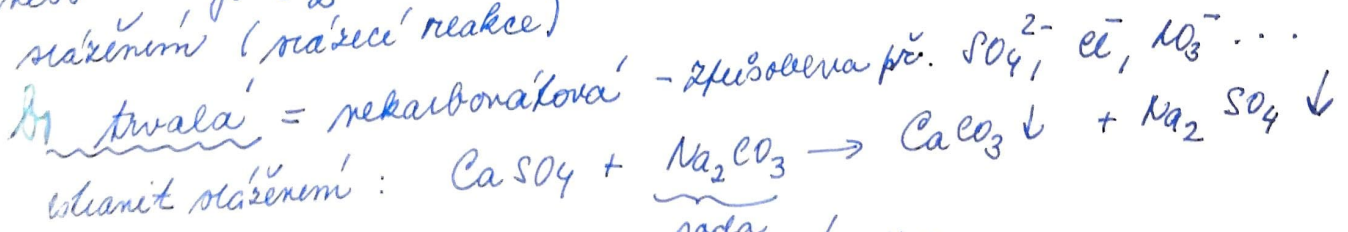 srážením (srážecí reakce)
b) trvalá = nekarbonátová - způsobena př. SO₄²⁻, Cl⁻, NO₃⁻ ...
odstranit srážením : CaSO₄ + Na₂CO₃ → CaCO₃↓ + Na₂SO₄↓
soda